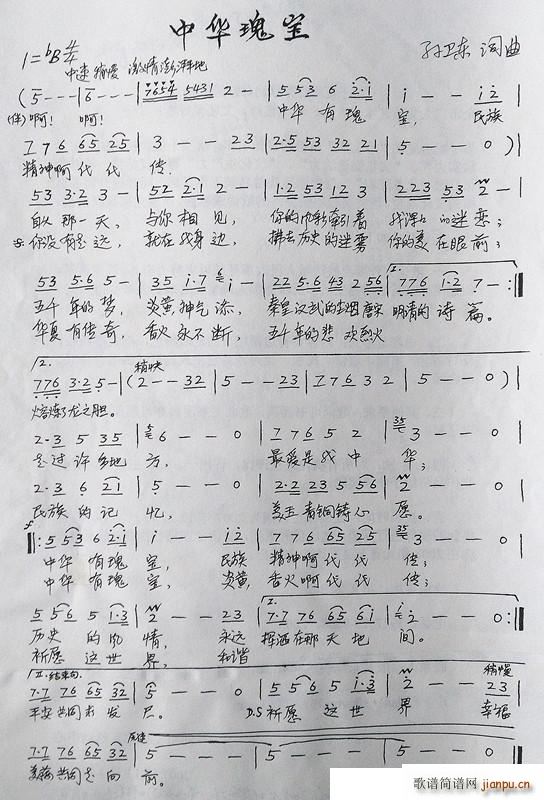 中华瑰宝
1=♭B 4/4
孙卫东 词曲
中速稍慢 激情澎湃地
(5 - - - | 6 - - - | 7654 5431 2 - | 5 53 6 2·1 | i - - i2 |
(伴)啊! 啊! 中华 有瑰 宝, 民族
7 7 6 65 25 | 3 - - 23 | 2·5 53 32 21 | 5 - - 0 ) |
精神啊 代代 传.
53 3·2 3 - | 52 2·1 2 - | 1·2 53 12 3 | 223 53 2 - |
自从 那一天, 与你相见, 你的 牵引着 我 的迷恋;
你没有走远, 就在我身边, 拂去历史的迷雾 你的美在眼前;
53 5·6 5 - | 35 i·7 6 i - | 22 5·6 43 2 56 | 1. 776 1·2 7 - :|
五千年的梦, 炎黄神气添, 秦皇汉武的 唐宋 明清的诗篇。
华夏有传奇, 香火永不断, 五千年的悲欢烈火
2. 稍快
776 3·2 5 - | (2 - - 32 | 5 - - 23 | 7 7 6 3 2 | 5 - - 0) |
熔炼了龙之胆。
2·3 5 35 | 6 - - 0 | 7 7 6 5 2 | 3 - - 0 |
走过许多地方, 最爱是我中华;
2·3 6 21 | 5 - - 0 | 2·2 23 5 56 | 2 - - 0 |
民族的记忆, 美玉青铜铸心愿。
|: 5 53 6 2·1 | i - - i2 | 7 76 65 25 | 3 - - 0 |
中华 有瑰宝, 民族 精神啊代代传;
中华 有瑰宝, 炎黄, 香火啊代代传;
5 56 5 1·3 | 2 - - 23 | 1. 7·7 76 65 61 | 2 - - 0 :|
历史 的 情, 永远 挥洒在那天地间。
祈愿 这世界, 和谐
II.结束句 稍慢
7·7 76 65 32 | 5 - - 0 | 5 56 5 i·3 | 2 - - 23 |
平安共同求发展. D.S祈愿 这世界 幸福
7·7 76 65 32 | 5 - - - | 5 - - - | 5 - - - | 5 - - 0 |
美满共同走向前。
歌谱简谱网
jianpu.cn